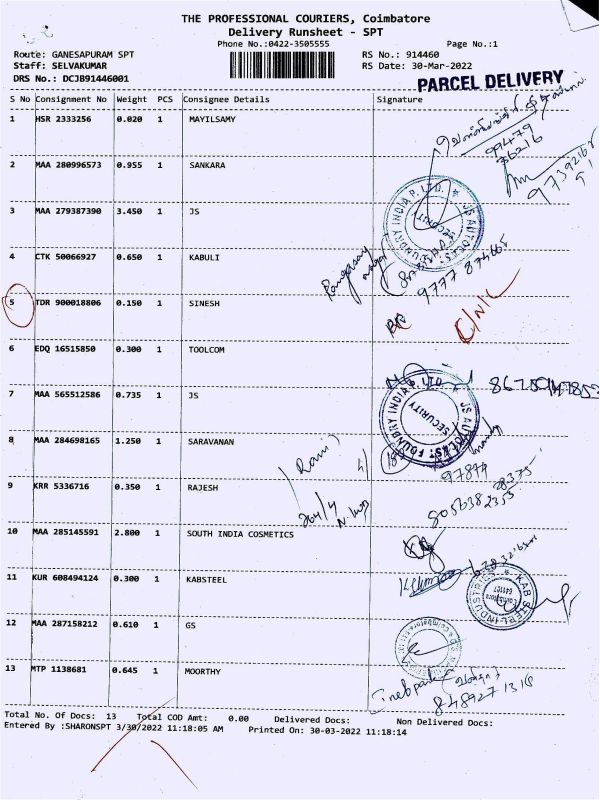 THE PROFESSIONAL COURIERS, Coimbatore
Delivery Runsheet - SPT
Phone No.:0422-3505555 Page No.:1
Route: GANESAPURAM SPT RS No.: 914460
Staff: SELVAKUMAR RS Date: 30-Mar-2022
DRS No.: DCJB91446001
PARCEL DELIVERY
S No Consignment No Weight PCS Consignee Details Signature
1 HSR 2333256 0.020 1 MAYILSAMY
2 MAA 280996573 0.955 1 SANKARA
3 MAA 279387390 3.450 1 JS
JS AUTOCAST FOUNDRY INDIA P. LTD.
SECURITY
4 CTK 50066927 0.650 1 KABULI
5 TDR 900018806 0.150 1 SINESH
6 EDQ 16515850 0.300 1 TOOLCOM
7 MAA 565512586 0.735 1 JS
JS AUTOCAST FOUNDRY INDIA P. LTD.
SECURITY
8 MAA 284698165 1.250 1 SARAVANAN
9 KRR 5336716 0.350 1 RAJESH
10 MAA 285145591 2.800 1 SOUTH INDIA COSMETICS
11 KUR 608494124 0.300 1 KABSTEEL
KAB STEEL INDUSTRIES
12 MAA 287158212 0.610 1 GS
13 MTP 1138681 0.645 1 MOORTHY
Total No. Of Docs: 13 Total COD Amt: 0.00 Delivered Docs: Non Delivered Docs:
Entered By :SHARONSPT 3/30/2022 11:18:05 AM Printed On: 30-03-2022 11:18:14